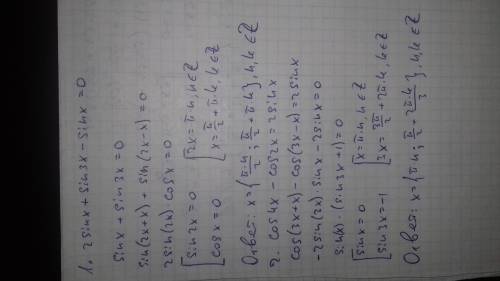 1. 2sinx + sin3x - sinx = 0
sinx + sin3x = 0
sin(2x+x) + sin(2x-x) = 0
2sin(2x)·cosx = 0
[sin2x = 0 [2x = πn, n∈Z
[cosx = 0 [x = π/2 + πk, k∈Z
Ответ: x = {πn/2; π/2 + πk}, n,k∈Z
2. cos4x - cos2x = 2sinx
cos(3x+x) - cos(3x-x) = 2sinx
-2sin(3x)·sinx - 2sinx = 0
sin(x)·(sin3x+1) = 0
[sinx = 0 [x = πn, n∈Z
[sin3x = -1 [3x = 3π/2 + 2πk, k∈Z
Ответ: x = {πn; π/2 + 2πk/3}, n,k∈Z